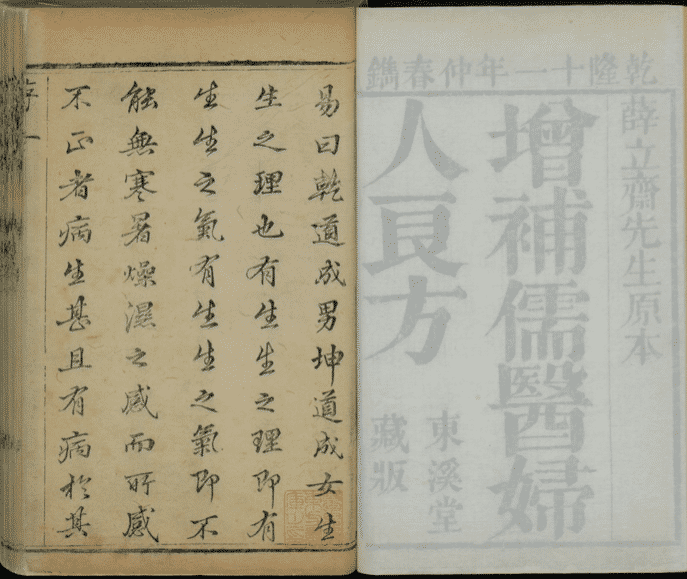 乾隆十一年仲春鐫
薛立齋先生原本
增補儒醫婦
人良方
東溪堂
藏版
易曰乾道成男坤道成女生
生之理也有生生之理即有
生生之氣有生生之氣即不
能無寒暑燥濕之感而所感
不正者病生甚且有病於其
序一